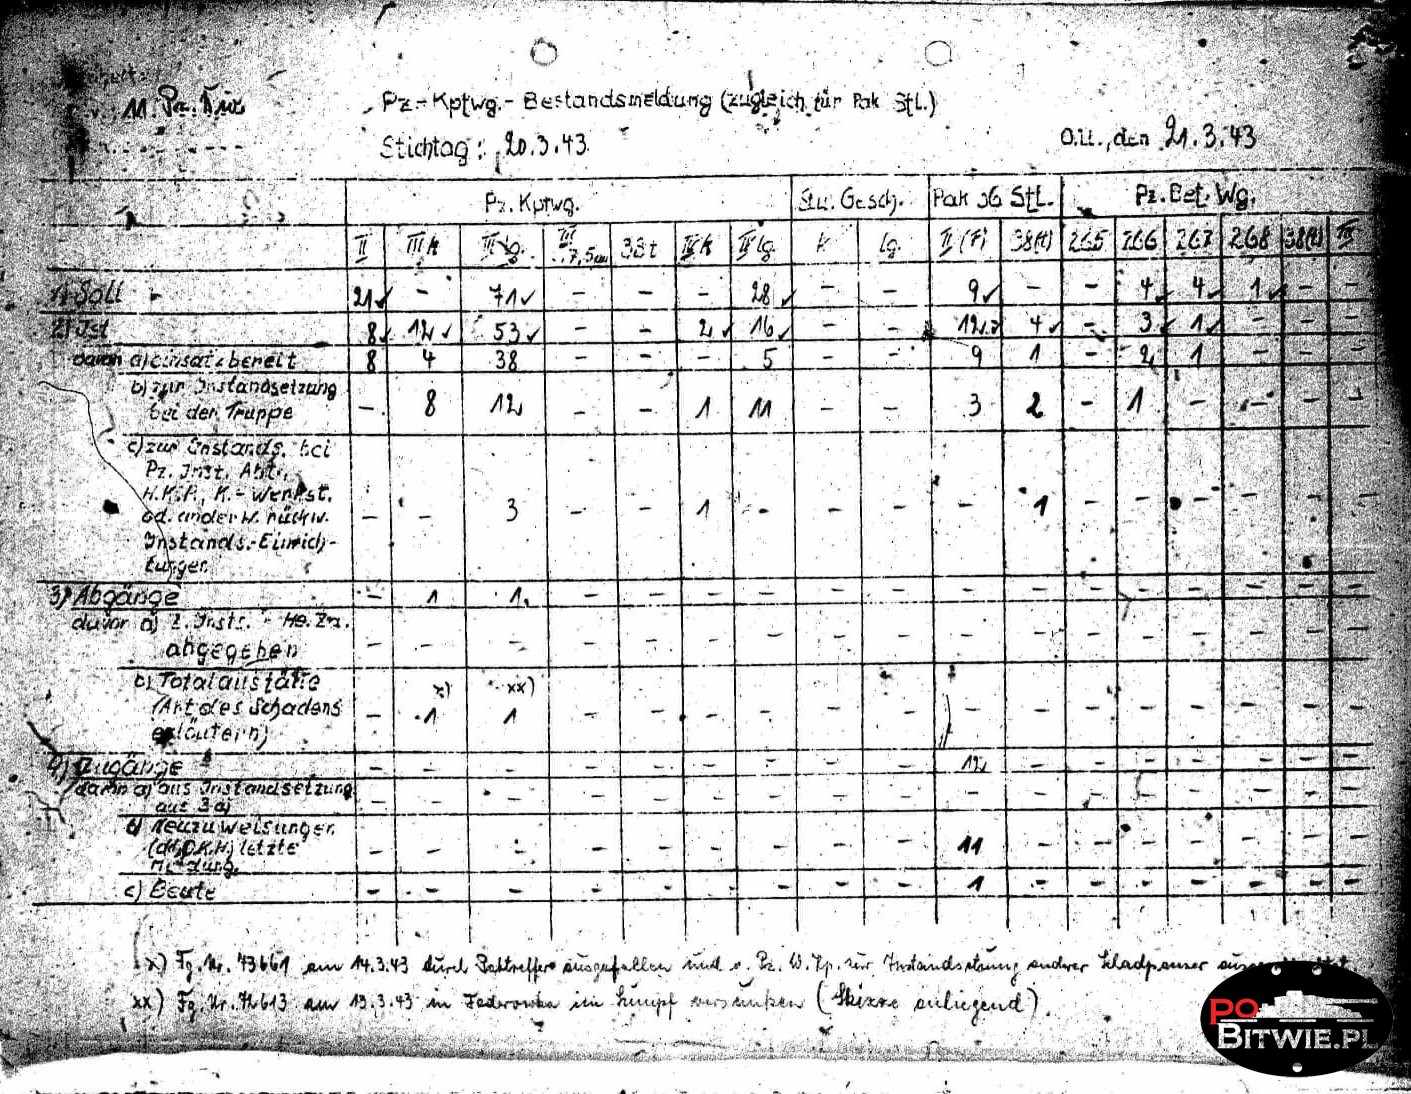 11. Pz. Div.
Pz.-Kptwg.-Bestandsmeldung (zugleich für Pak Sfl.)
Stichtag: 20.3.43.
O.U., den 21.3.43
Pz. Kptwg. Stu. Gesch. Pak 36 Sfl. Pz. Bef. Wg.
II III k III lg. III 7,5 cm 38 t IV k IV lg k lg. II (F) 38(t) 265 266 267 268 38(t) III
1) Soll 21 - 71 - - - 28 - - 9 - - 4 4 1 - -
2) Ist 8 12 53 - - 2 16 - - 12 4 - 3 1
davon a) einsatzbereit 8 4 38 - - - 5 9 1 - 2 1
b) zur Instandsetzung
bei der Truppe - 8 12 - - 1 11 - - 3 2 - 1 - - - -
c) zur Instands. bei
Pz. Inst. Abt.,
H.K.P., K.-Werkst.
od. anderw. rückw. - - 3 - - 1 - - - - 1 - - - - - -
Instands.-Einrich-
tungen
3) Abgänge - 1 1 - - - - - - - - - - - - - -
davon a) z. Insts. - He. Za.
abgegeben - - - - - - - - - - - - - - - - -
b) Totalausfälle
(Art des Schadens x) xx)
erläutern) - 1 1 - - - - - - - - - - - - -
4) Zugänge - - - - - - - - - 12 - - - - - - -
davon a) aus Instandsetzung
aus 3a) - - - - - - - - - - - - - - - - -
b) Neuzuweisungen
(dh. O.K.H.) letzte - - - - - - - - - 11 - - - - - - -
Meldung
c) Beute - - - - - - - - - 1 - - - - - - -
x) Fg. Nr. 73661 am 14.3.43 durch Paktreffer ausgefallen und v. Pz. W. Kp. zur Instandsetzung anderer Schadpanzer
xx) Fg. Nr. 72613 am 13.3.43 in Federowka im Sumpf versunken (Skizze anliegend).
PO
BITWIE.PL